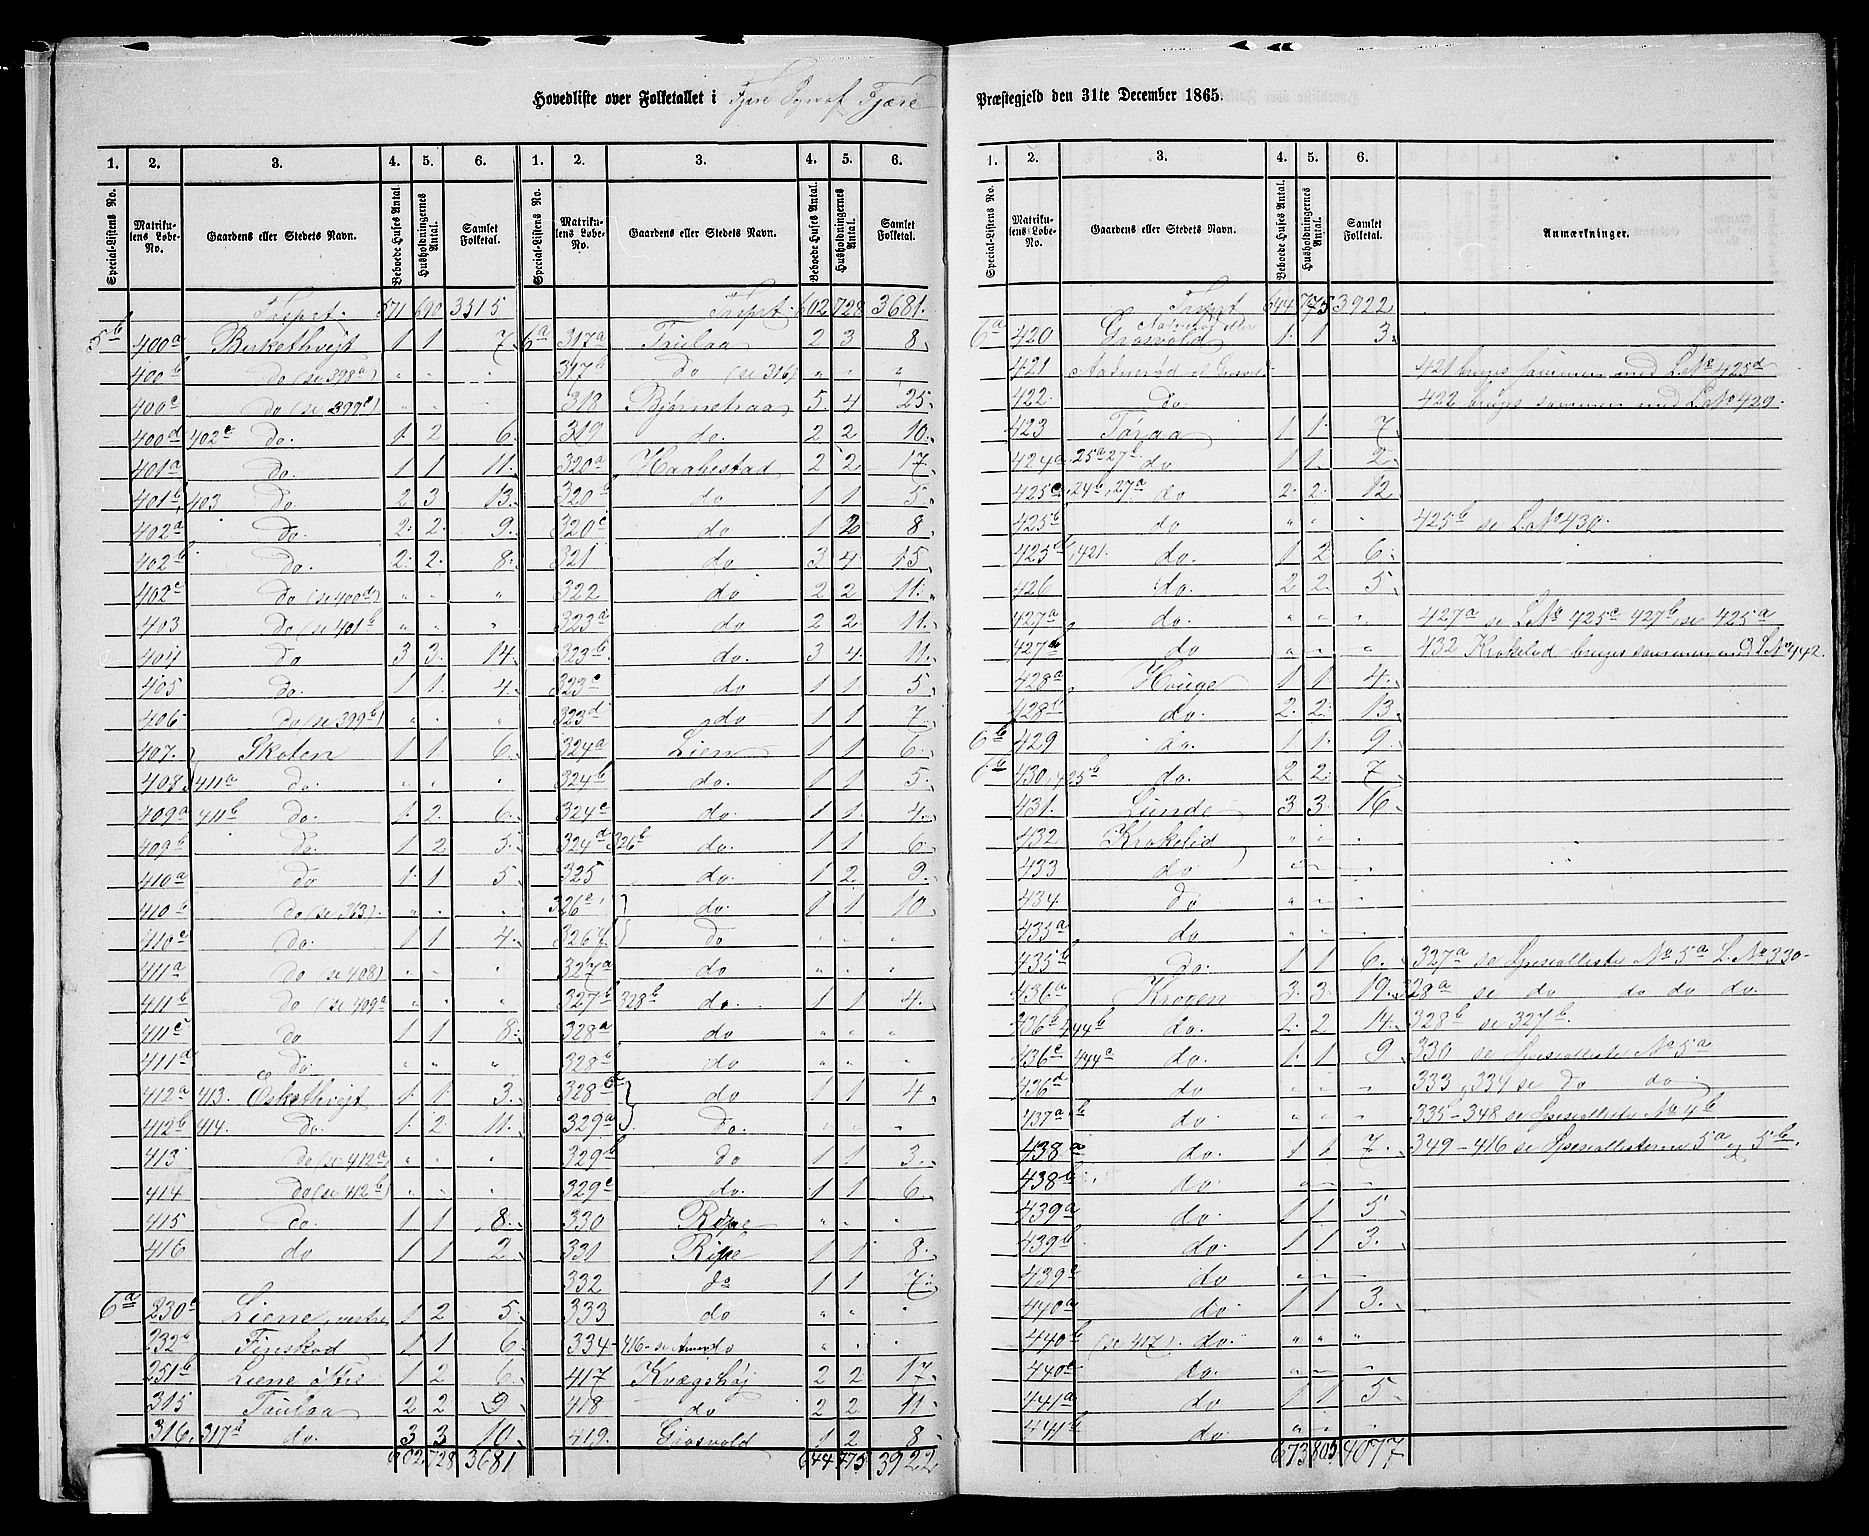 Hovedliste over Folketallet i Fjære Sogn af Fjære
Præstegjeld den 31te December 1865.
1. 2. 3. 4. 5. 6. 1. 2. 3. 4. 5. 6.
Special-Listens No. Matrikulens Løbe-No. Gaardens eller Stedets Navn. Beboede Huses Antal. Husholdningernes Antal. Samlet Folketal. Special-Listens No. Matrikulens Løbe-No. Gaardens eller Stedets Navn. Beboede Huses Antal. Husholdningernes Antal. Samlet Folketal.
Trsprt. 571 690 3515
5b 400a Birkethvejt 1 1 7
400b do (se 398a) " " "
400c do (se 399c) " " "
400d 402c do. 1 2 6
401a do. 1 1 11
401b 403 do. 2 3 13
402a do. 2 2 9
402b do. 2 2 8
402c do (se 400d) " " "
403 do (se 401b) " " "
404 do 3 3 14
405 do 1 1 4
406 do (se 399b) " " "
407 Skolen 1 1 6
408 411a do. " " "
409a 411b do. 1 2 6
409b do. 1 2 5
410a do 1 1 5
410b do (se 363) " " "
410c do. 1 1 4
411a do (se 408) " " "
411b do (se 409a " " "
411c do 1 1 8
411d do. " " "
412a 413. Eskethvejt 1 1 3
412b 414. do. 1 2 11
413 do (se 412a) " " "
414 do (se 412b) " " "
415 do. 1 1 8
416 do 1 1 2
6a 230c Liene, vestre 1 2 5
232b Finskod 1 1 6
251b Liene østre 1 2 6
315 Traulaa 2 2 9
316, 317a do. 3 3 10
602 728 3681
Trsprt. 602 728 3681
6a 317a Trulaa 2 3 8
317b do (se 316) " " "
318 Bjørnetraa 5 4 25
319 do. 2 2 10
320a Haabestad 2 2 17
320b do 1 1 5
320c do 1 2 8
321 do 3 4 15
322 do 2 2 11
323a do 2 2 11
323b do. 3 4 11
323c do 1 1 5
323d do 1 1 7
324a Lien 1 1 6
324b do. 1 1 5
324c do. 1 1 4
324d 326b do. 1 1 6
325 do. 1 2 9
326c do. 1 1 10
326d do " " "
327a do " " "
327b 328b do. 1 1 4
328a do " " "
328b do " " "
328c do 1 1 4
329a do. " " "
329b do 1 1 3
329c do. 1 1 6
330 Ripe " " "
331 Ripe 1 1 8
332 do 1 1 7
333 do " " "
334 416 se Anmn do " " "
417 Kvægshøj 2 2 17
418 do 2 2 11
419. Grosvold 1 2 8
644 775 3922
1. 2. 3. 4. 5. 6.
Special-Listens No. Matrikulens Løbe-No. Gaardens eller Stedets Navn. Beboede Huses Antal. Husholdningernes Antal. Samlet Folketal. Anmærkninger.
Trsprt 644 775 3922
6a 420 Grosvold 1 1 3
421 421 bruges sammen med L.No 425d
422 do. 422 bruges sammen med L.No 429.
423 Tøraa 1 1 7
424a 25a 27b do 1 1 2
425c, 24b, 27a do 2 2 12
425b do " " " 425b se L.No 430.
425d, 421. do. 1 2 6
426 do. 2 2 5
427a do. " " " 427a se L.No 425c 427b, se 425a
427b do " " " 432 Krokelid bruges sammen med L.No 442.
428a Houge 1 1 4
428b do. 2 2 13
6b 429 do. 1 1 9
6b 430, 425b do. 2 2 7
431. Lunde 3 3 16
432 Krokelid " " "
433 do " " "
434 do " " "
435a do " " "
435b do. 1 1 6. 327a se Speciallister No 5a L.No 330
436a Kroven 3 3 19. 328a se do do do do.
436b 444b do. 2 2 14. 328b se 327b.
436c 444a do. 1 1 9 330 se Speciallister No 5a
436d do " " " 333, 334 se do do
437a b do " " " 335-348 se Speciallister No 4b
438a do 1 1 7. 349-416 se Speciallisterne 5a og 5b.
438b do. " " "
439a do. 1 1 5
439b do. 1 1 3
439c do " " "
440a do. 1 1 3
440b (se 417). do. " " "
440c do. " " "
441a do 1 1 5
441b do. " " "
673 805 4077